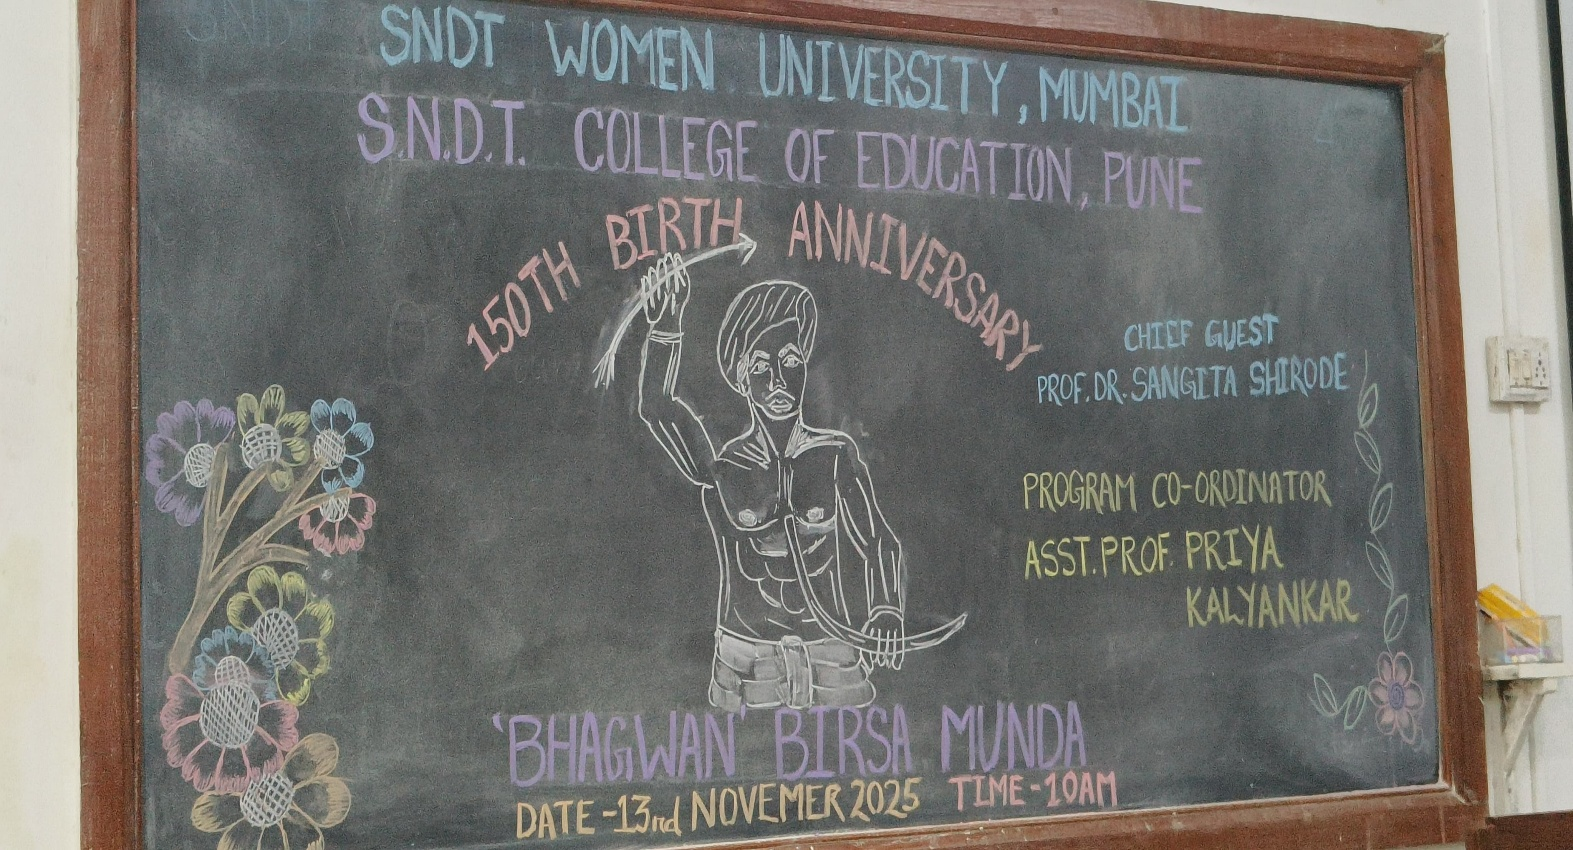 SNDT WOMEN UNIVERSITY, MUMBAI
S.N.D.T. COLLEGE OF EDUCATION, PUNE
150TH BIRTH ANNIVERSARY
CHIEF GUEST
PROF. DR. SANGITA SHIRODE
PROGRAM CO-ORDINATOR
ASST. PROF. PRIYA
KALYANKAR
'BHAGWAN' BIRSA MUNDA
DATE -13rd NOVEMER 2025 TIME -10AM